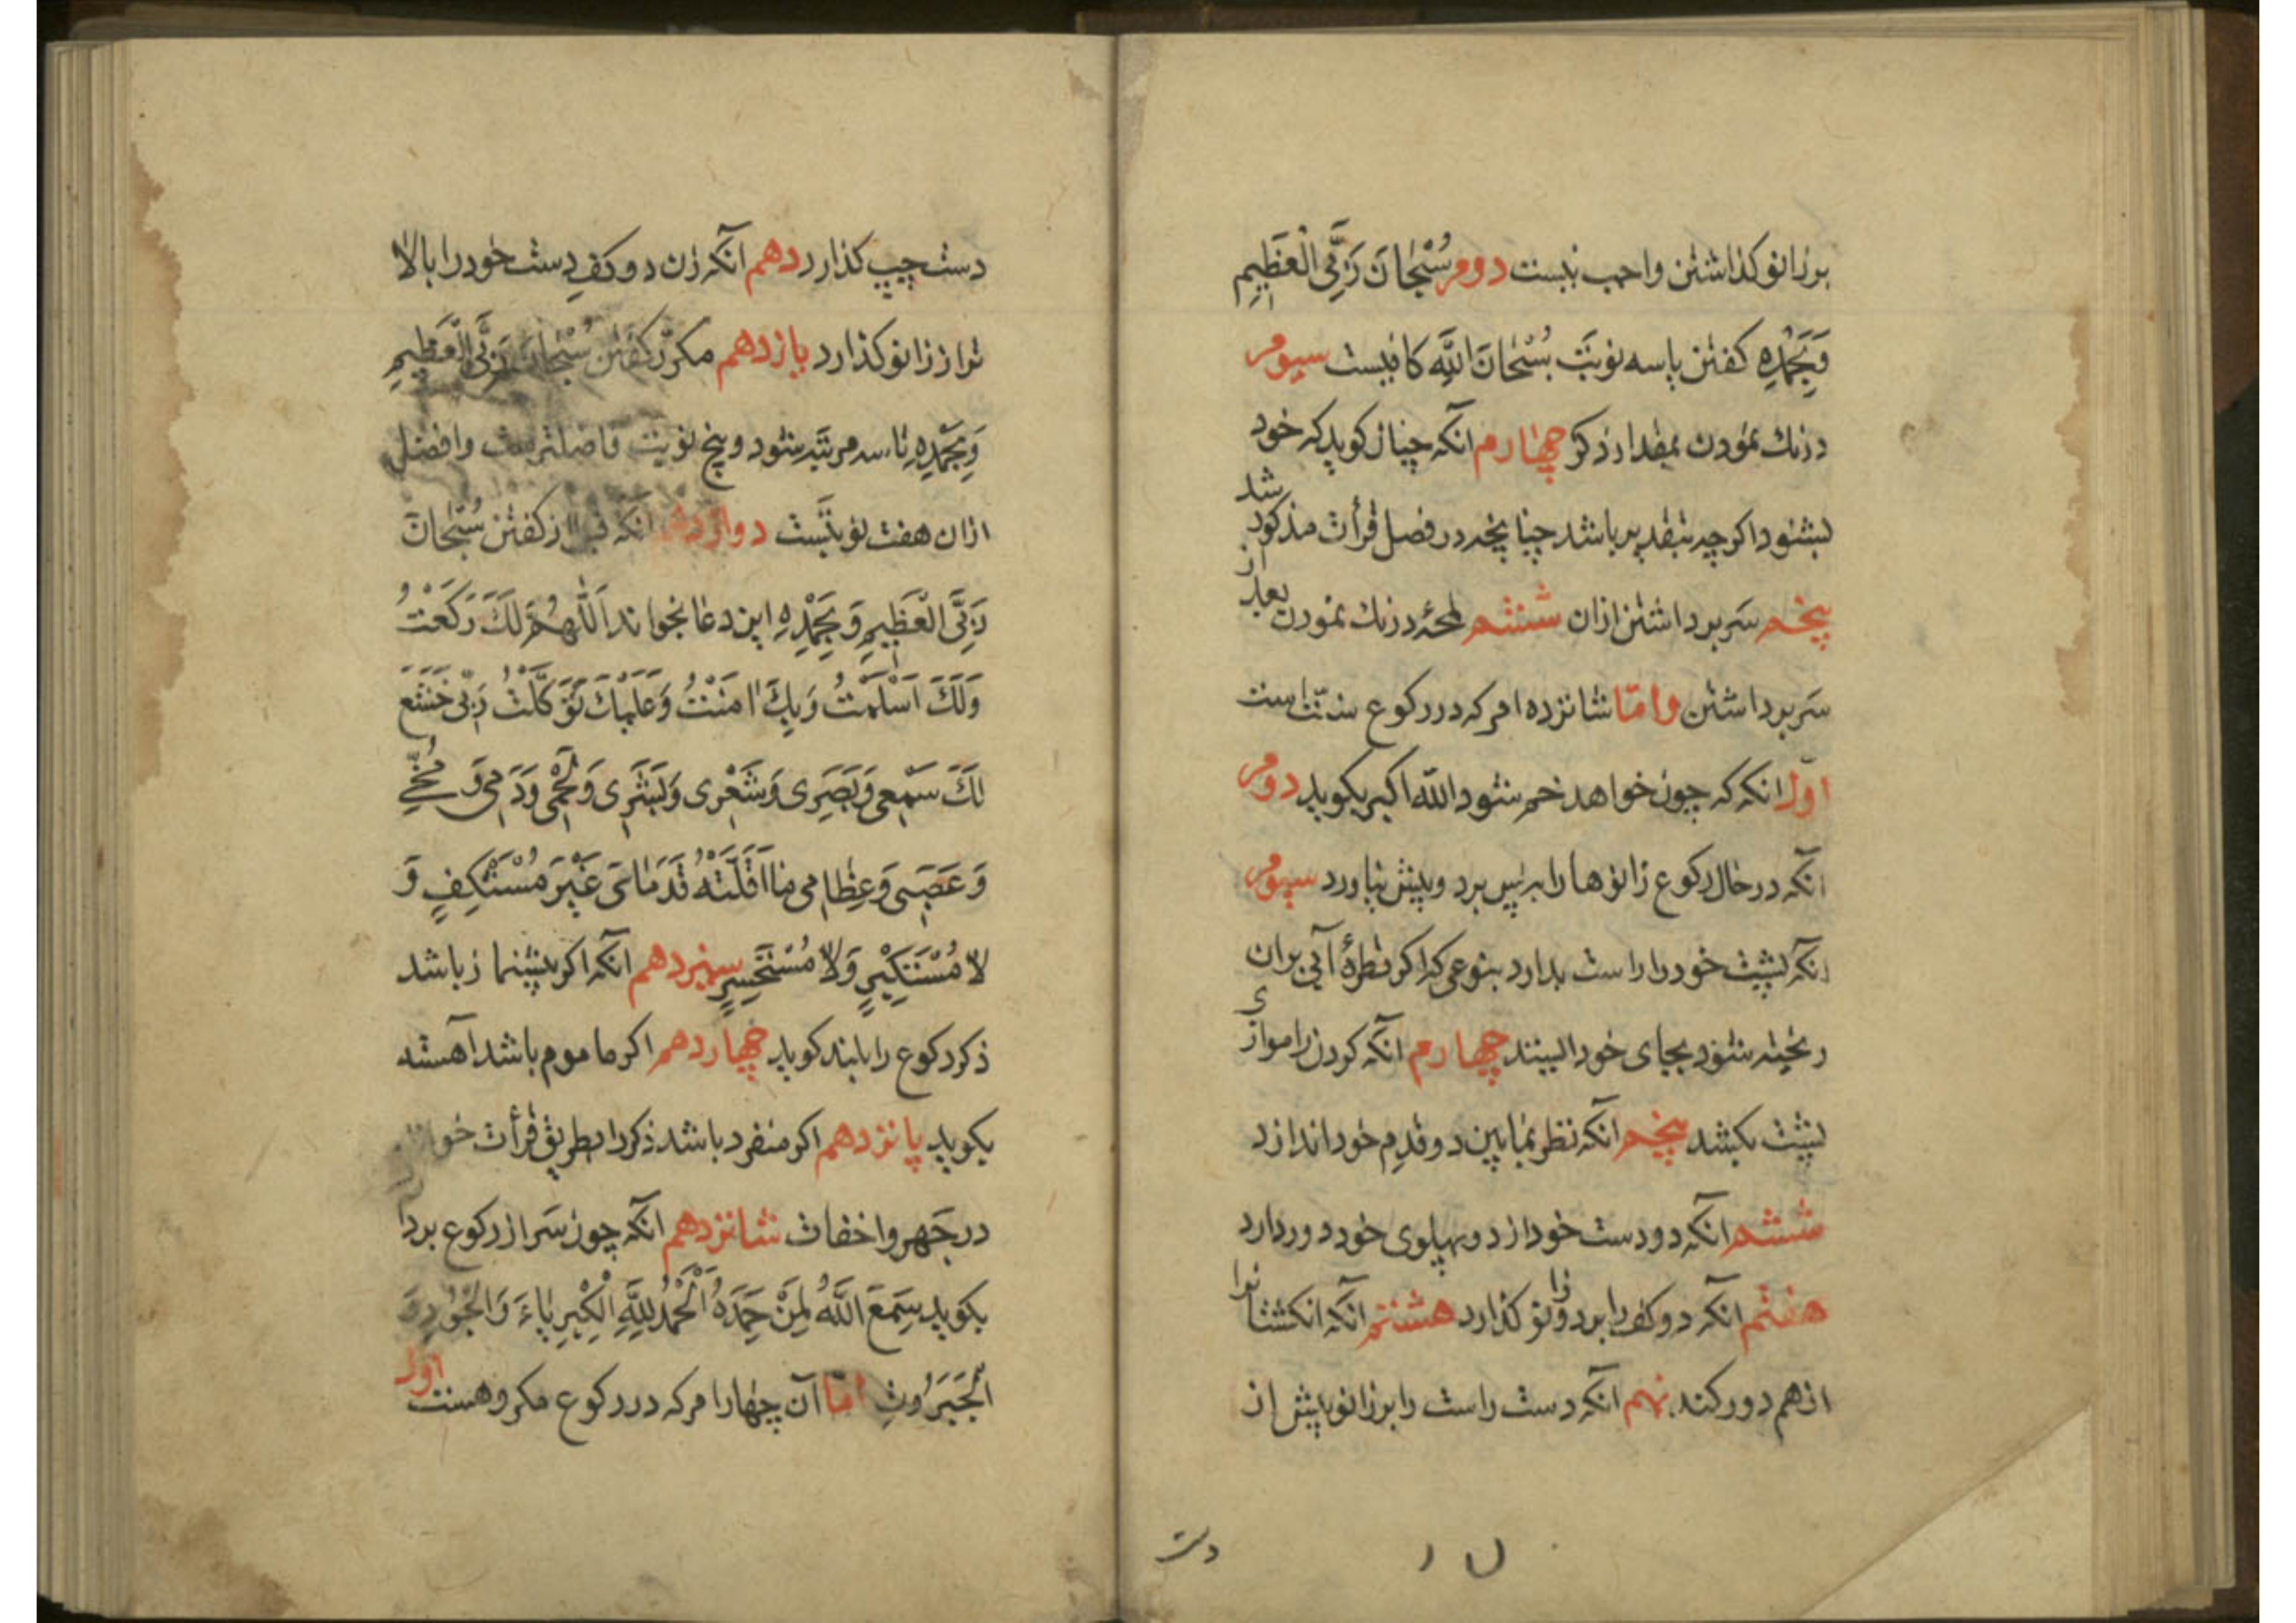 برزانو کذاشتن واجب نیست دوم سُبْحَانَ رَبِّیَ الْعَظِیمِ
وَبِحَمْدِهِ کفتن یا سه نوبت سُبْحَانَ اللَّهِ کافیست سیوم
درنك نمودن بمقدار ذکر چهارم انکه چنان کوید که خود
بشنود اکرچه بتقدیر باشد چنانچه در فصل قرأت مذکور شد
پنجم سَر برداشتن ازان ششم لمحهٔ درنك نمودن بعد از
سَر برداشتن وامّا شانزده امر که در رکوع سنّت است
اوّل انکه که چون خواهد خم شود اللّه اکبر بکوید دوم
آنکه در حال رکوع زانوها را به پس برد و پیش نیاورد سیوم
آنکه پشت خود را راست بدارد بنوعی که اکر قطرهٔ آبی بران
ریخته شود بجای خود ایستد چهارم آنکه کردن را موازی
پشت بکشد پنجم آنکه نظر بمابین دو قدم خود اندازد
ششم آنکه دو دست خود از دو پهلوی خود دور دارد
هفتم آنکه دو کف را بر دو زانو کذارد هشتم آنکه انکشتانرا
از هم دور کند نهم آنکه دست راست را بر زانو پیش از
دست
دست چپ کذارد دهم آنکه زن دو کفِ دست خود را بالا
تر از زانو کذارد یازدهم مکرّر کفتن سُبْحَانَ رَبِّیَ الْعَظِیمِ
وَبِحَمْدِهِ تا سه مرتبه شود و پنج نوبت فاضلترست و افضل
ازان هفت نوبتست دوازدهم انکه قبل از کفتن سُبْحَانَ
رَبِّیَ الْعَظِیمِ وَبِحَمْدِهِ این دعا بخواند اَللّٰهُمَّ لَكَ رَکَعْتُ
وَلَكَ اَسْلَمْتُ وَبِكَ اٰمَنْتُ وَعَلَیْكَ تَوَکَّلْتُ رَبّی خَشَعَ
لَكَ سَمْعی وَبَصَری وَشَعْری وَبَشَری وَلَحْمی وَدَمی وَمُخّی
وَعَصَبی وَعِظٰامی مٰا اَقَلَّتْهُ قَدَمٰایَ غَیْرَ مُسْتَنْکِفٍ وَ
لاٰ مُسْتَکْبِرٍ وَلاٰ مُسْتَحْسِرٍ سیزدهم آنکه اکر پیشنماز باشد
ذکر رکوع را بلند کوید چهاردهم اکر ماموم باشد آهسته
بکوید پانزدهم اکر منفرد باشد ذکر را بطریق قرأت خواند
در جَهر و اخفات شانزدهم آنکه چون سَر از رکوع بردارد
بکوید سَمِعَ اللَّهُ لِمَنْ حَمِدَهُ اَلْحَمْدُ لِلَّهِ الْکِبْرِیٰاءَ وَالْجُودِ وَ
الْجَبَرُوتِ امّا آن چهار امر که در رکوع مکروهست اول